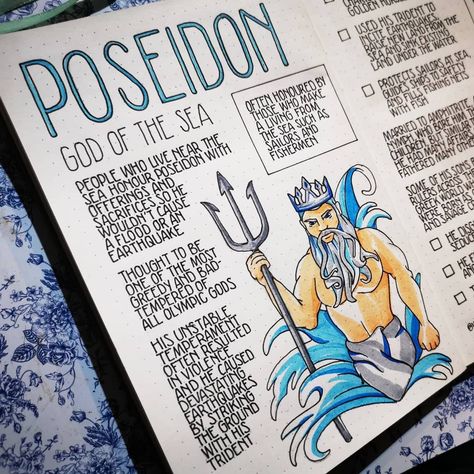 POSEIDON
GOD OF THE SEA
PEOPLE WHO LIVE NEAR THE
SEA HONOUR POSEIDON WITH
OFFERINGS AND
SACRIFICES SO HE
WOULDN'T CAUSE
A FLOOD OR AN
EARTHQUAKE
THOUGHT TO BE
ONE OF THE MOST
GREEDY AND BAD-
TEMPERED OF
ALL OLYMPIC GODS
HIS UNSTABLE
TEMPERAMENT
OFTEN RESULTED
IN VIOLENCE
AND HE CAUSED
DEVASTATING
EARTHQUAKES
BY STRIKING
THE GROUND
WITH HIS
TRIDENT
OFTEN HONOURED BY
THOSE WHO MAKE
A LIVING FROM
THE SEA SUCH AS
SAILORS AND
FISHERMEN
USED HIS TRIDENT TO
EARTHQUAKES
LAND FROM THE
AND SINK EXISTING
LAND UNDER THE WATER
PROTECTS SAILORS AT SEA
GUIDES SHIPS TO SAFETY
AND FILLS FISHING NETS
WITH FISH
MARRIED TO
SOME OF HIS